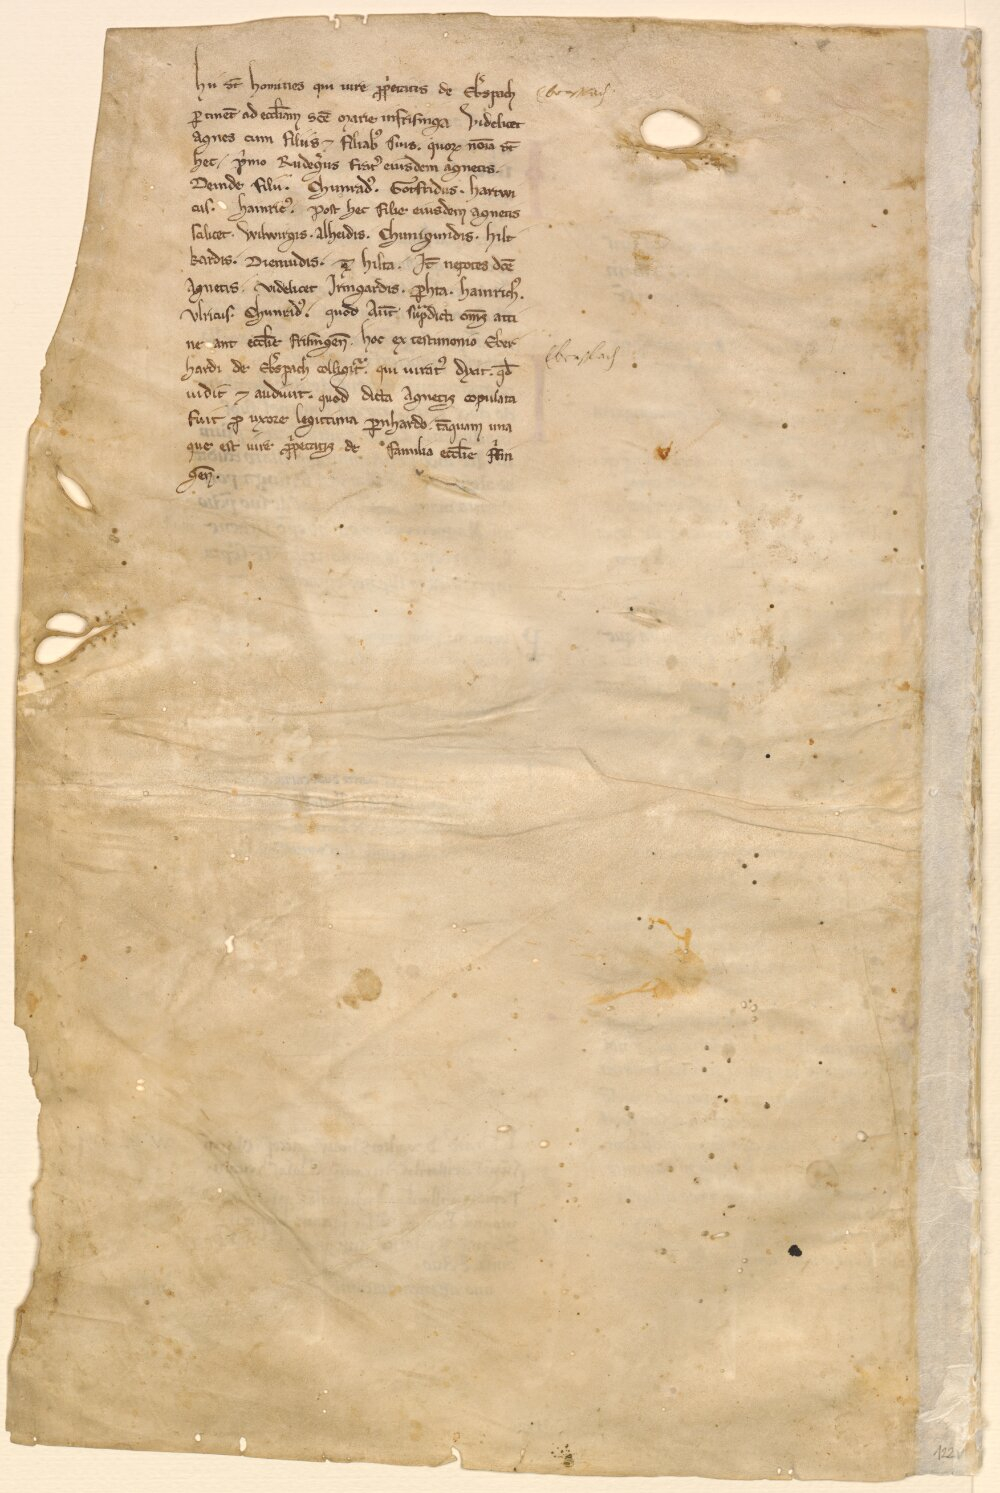 Hii st̄ homines qui iure ꝓp̄etatis de Eb̄spach
ꝑtinēt ad eccl̄iam Sc̄e Marie in frisinga Videlicet
Agnes cum filiis ⁊ filiab᷒ suis. quoꝝ noīa st̄
hec. p̄mo Rudeḡus frat᷒ eiusdem Agnetis.
Deinde filii. Chunrad᷒. Gotfridus. hartwi
cus. hainric᷒. post hec filie eiusdem Agnetis
scilicet. Wilwirgis. Alheidis. Chunigundis. hilt
kardis. Diemudis. hilta. It̄ nepotes dc̄e
Agnetis. videlicet Irmgardis. ꝑhta. hainrich᷒.
Vlricus. Chunrad᷒. quod Aut̄ sup̄dicti om̄s atti
ne ant eccl̄ie frisingen̄. hoc ex testimonio Eber
hardi de Eb̄spach colligit᷒. qui iurat᷒ dixit. qd̄
uidit ⁊ audiuit. quod dicta Agnetis copulata
fuit ꝓ uxore legittima ꝑnhardo. tāquam una
que est iure ꝓp̄etatis de familia eccl̄ie fr̄isin
gen̄.
Eberspach
Eberspach
122